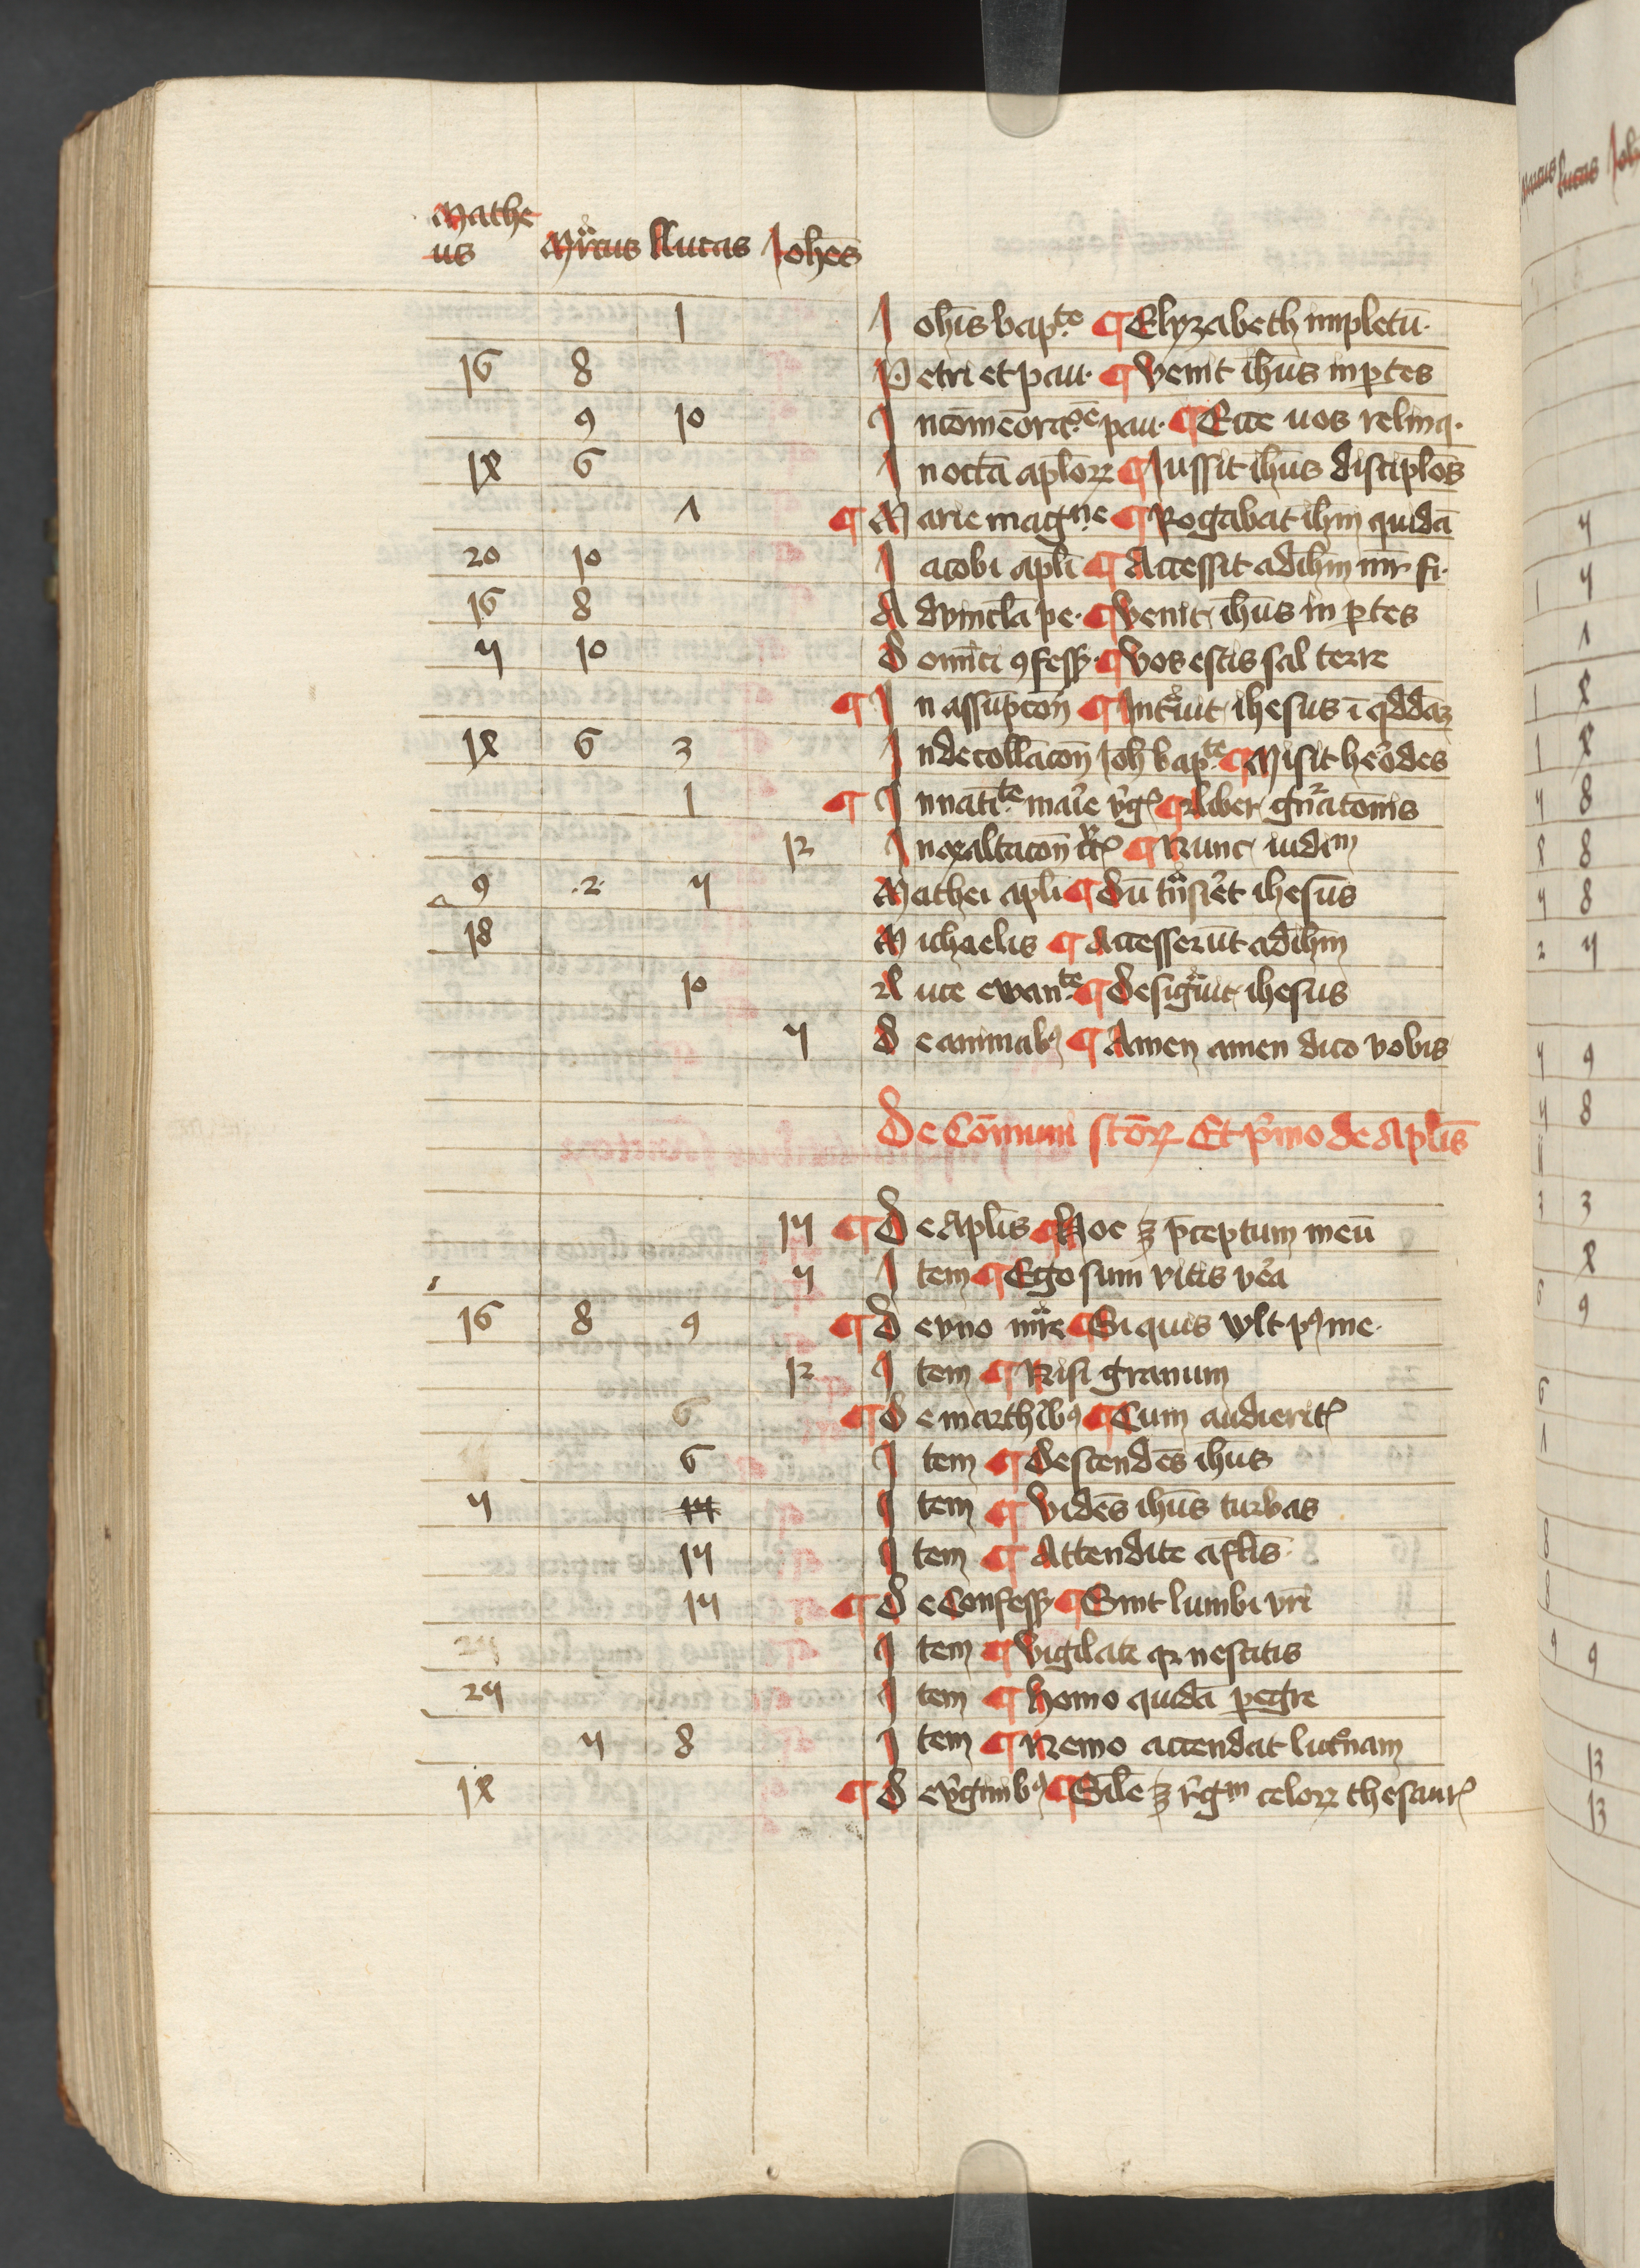 Mathe
us Mrcus Lucas Johes
1 Johis bapte ¶ Elyzabeth impletū
16 8 Petri et pau. ¶ Venit ihus in ptes
9 10 In cōmeoracōe pau. ¶ Ecce nos relinq.
1λ 6 In octā aplorꝝ ¶ Jussit ihus disciplos
1 ¶ Marie magne ¶ Rogabat ihm quidā
20 10 Jacobi apli ¶ Accessit ad ihm mr fi.
16 8 Ad vincla pe. ¶ Venit ihus in ptes
4 10 Dominici ꝯfess. ¶ Vos estis sal terre
¶ In assūpcōn ¶ Intuit ihesus ī qddaꝫ
1λ 6 3 In decollacōn Joh bapte ¶ Misit herodes
1 ¶ In natite marie vgꝭ ¶ Liber gnratonis
12 In exaltacōn crꝭ ¶ Nunc iudim
9 .2. 4 Mathei apli ¶ Dū tnsiret ihesus
18 Michaelis ¶ Accesserūt ad ihm
10 Luce ewante ¶ Desigūit ihesus
4 De animabꝰ ¶ Amen amen dico vobis
De Cōmuni scōrꝝ Et pmo de Aplis
14 ¶ De Aplis ¶ Hoc ꝫ pceptum meū
4 Item ¶ Ego sum vitis vera
16 8 9 ¶ De vno mre ¶ Si quis vlt pꝰ me.
12 Item ¶ Nisi granum
6 ¶ De marthibꝰ ¶ Cum audieritꝭ
6 Item ¶ Descendēs ihus
4 14 Item ¶ Vidēs ihus turbas
14 Item ¶ Attendite a flis
14 ¶ De Confess. ¶ Sint lumbi vri
24 Item ¶ Vigilate qꝛ nescitis
24 Item ¶ Homo quidā pegre
4 8 Item ¶ Nemo accendat lucnam
1λ ¶ De vginibꝰ ¶ Sile ꝫ rgm celorꝝ thesaurꝭ